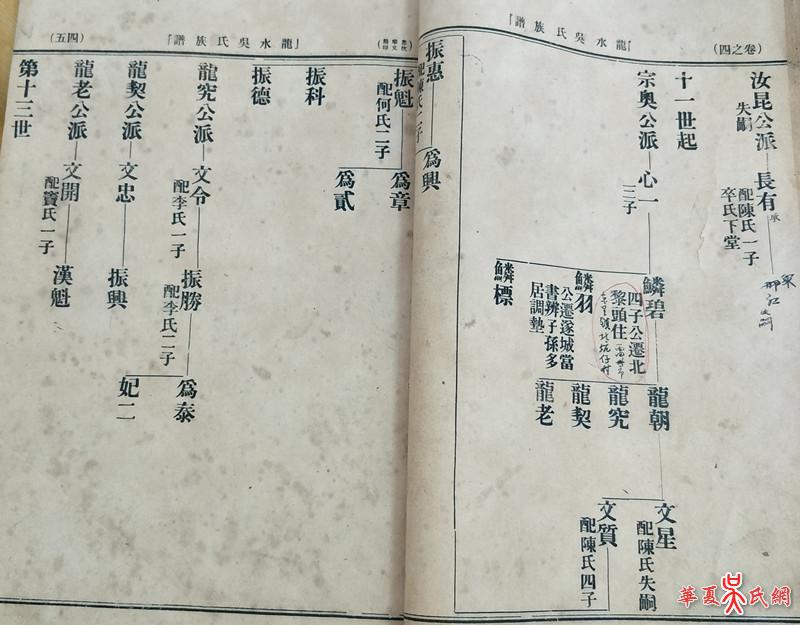 卷之四
『龍水吳氏族譜』
汝昆公派
失嗣
長有
配陳氏一子
卒氏下堂
十一世起
宗奧公派
心一
三子
鱗碧
四子公遷北
黎頭住
鱗羽
公遷遂城當
書辦子孫多
居調塾
鱗標
龍朝
龍究
龍契
龍老
文星
配陳氏失嗣
文質
配陳氏四子
振惠
配陳氏一子
爲興
『龍水吳氏族譜』
(四五)
振魁
配何氏二子
爲章
爲貳
振科
振德
龍究公派
文令
配李氏一子
振勝
配李氏二子
爲泰
妃二
龍契公派
文忠
振興
龍老公派
文開
配竇氏一子
漢魁
第十三世
華夏吳氏網